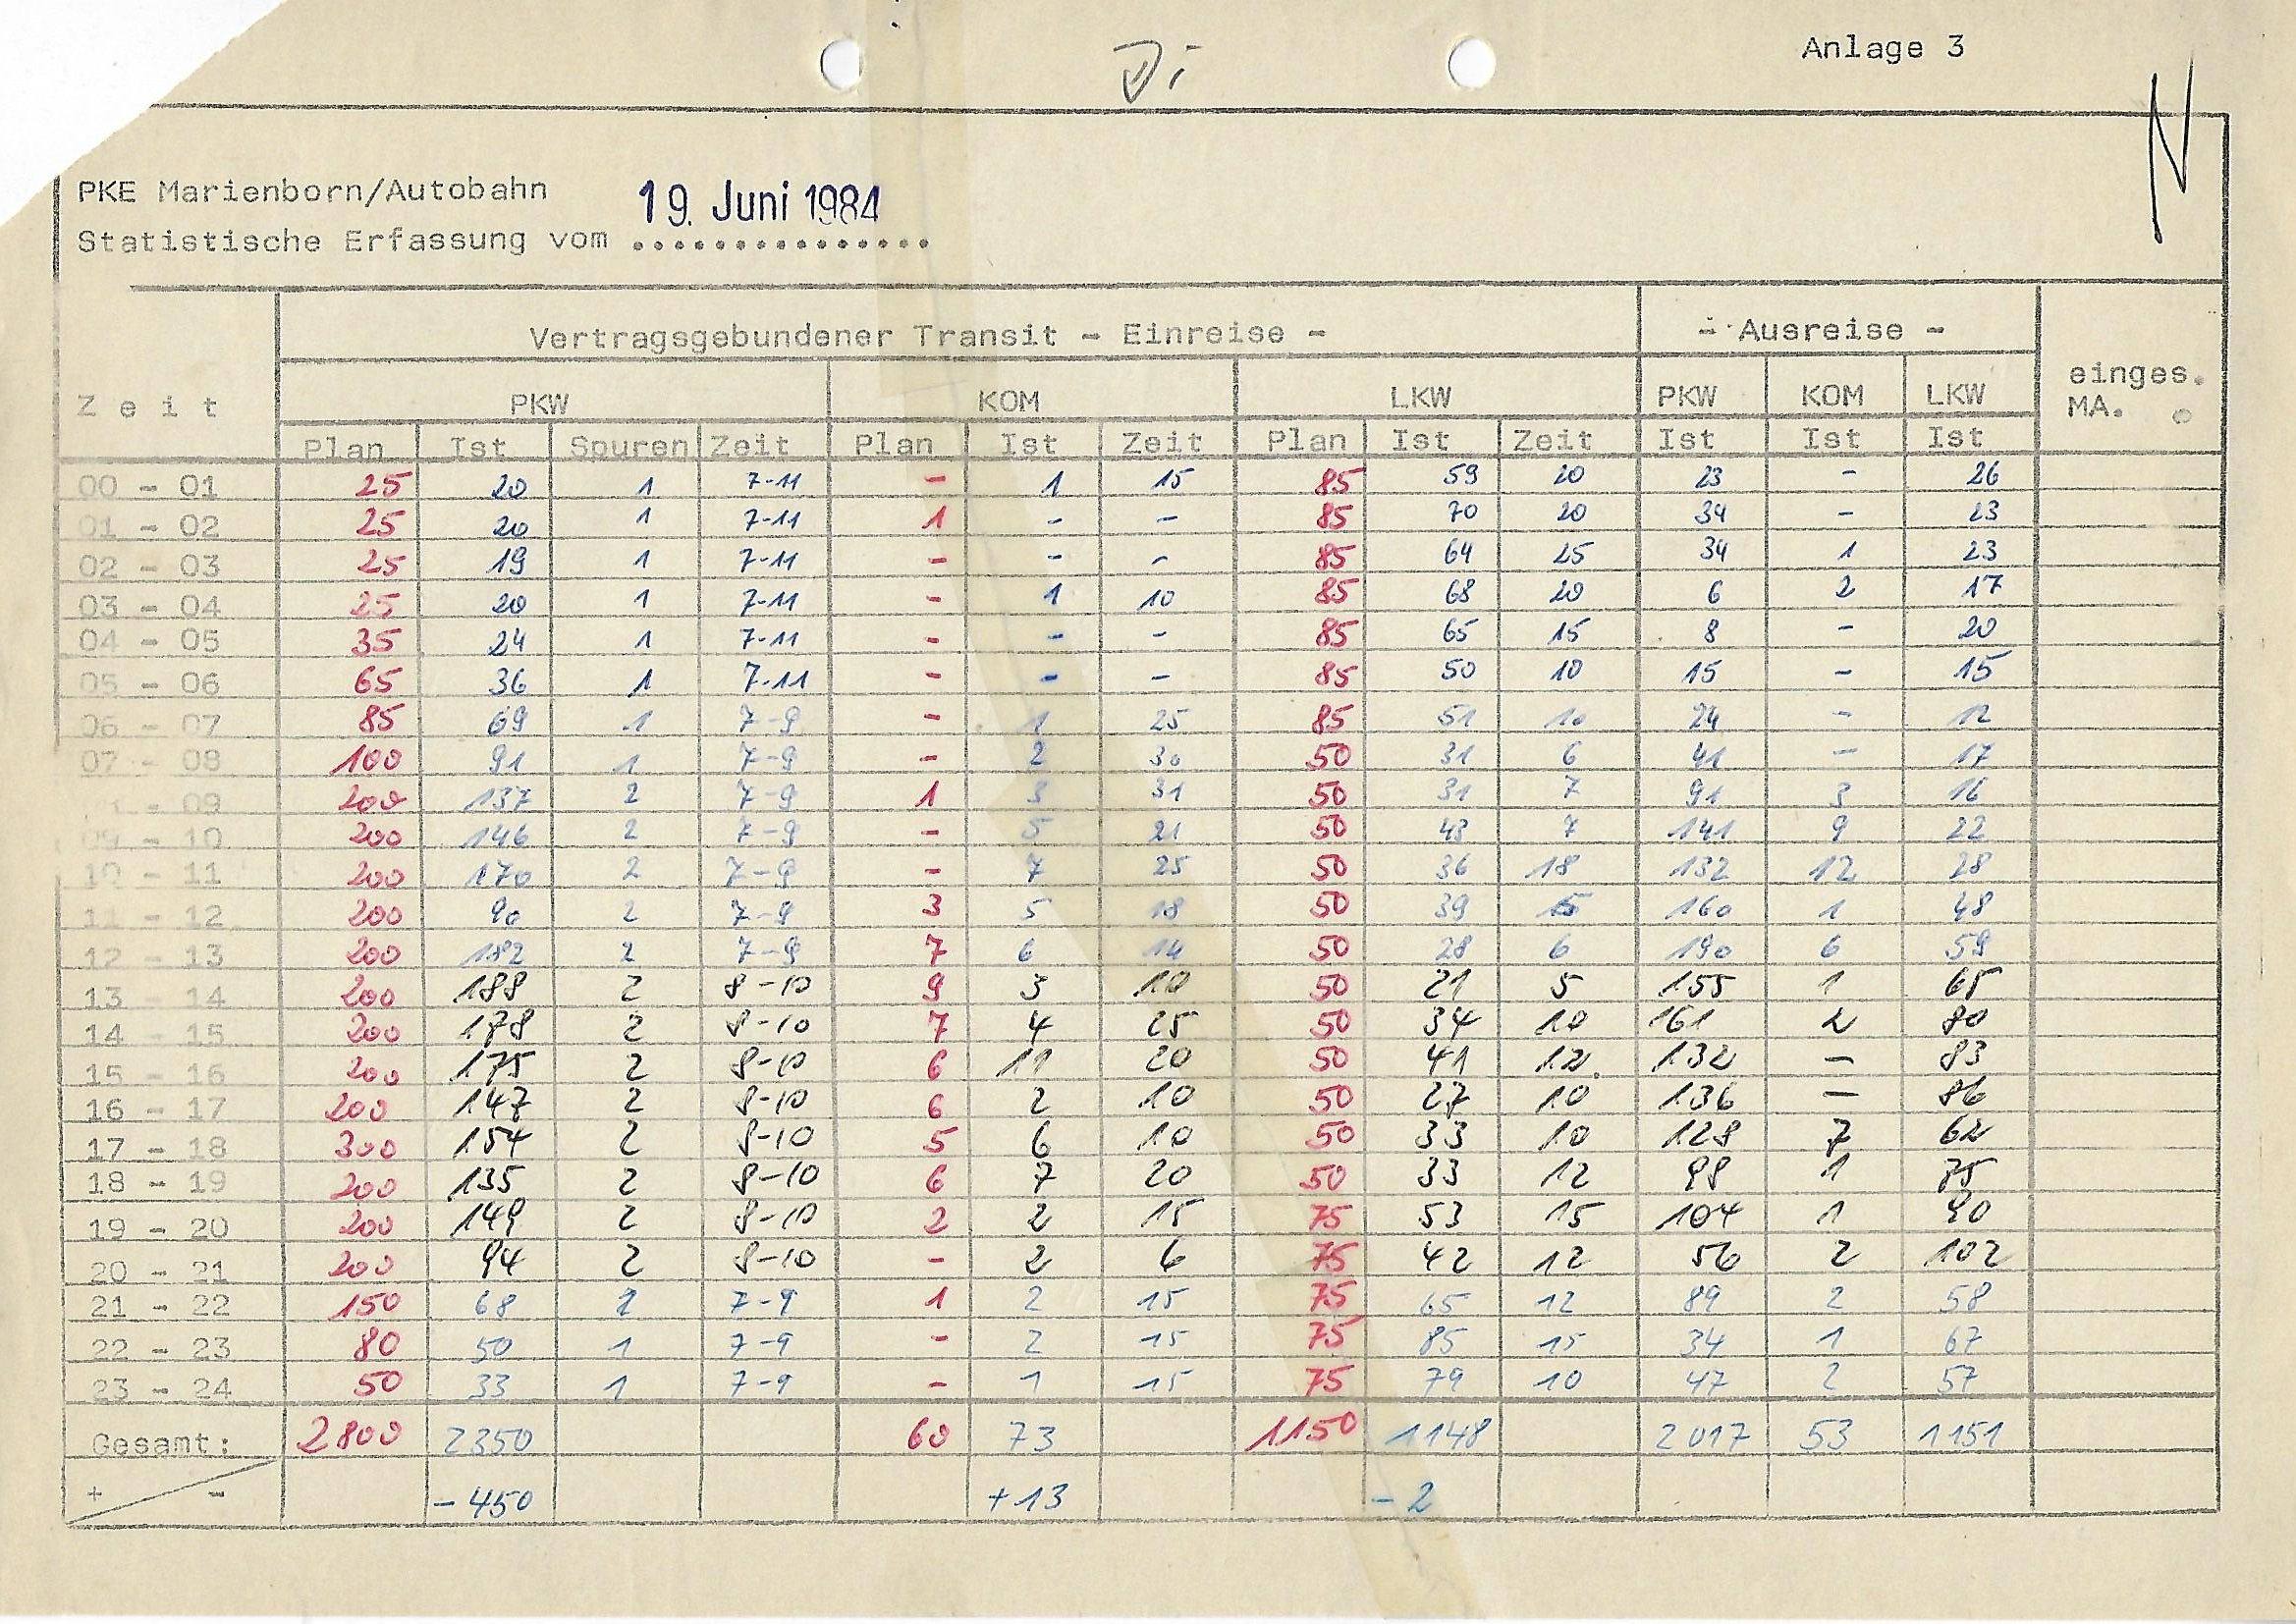 Di
Anlage 3
N
PKE Marienborn/Autobahn 19. Juni 1984
Statistische Erfassung vom ...............
Vertragsgebundener Transit - Einreise - - Ausreise -
Zeit PKW KOM LKW PKW KOM LKW einges. MA.
Plan Ist Spuren Zeit Plan Ist Zeit Plan Ist Zeit Ist Ist Ist
00 - 01 25 20 1 7-11 - 1 15 85 59 20 23 - 26
01 - 02 25 20 1 7-11 1 - - 85 70 20 34 - 23
02 - 03 25 19 1 7-11 - - - 85 64 25 34 1 23
03 - 04 25 20 1 7-11 - 1 10 85 68 20 6 2 17
04 - 05 35 24 1 7-11 - - - 85 65 15 8 - 20
05 - 06 65 36 1 7-11 - - - 85 50 10 15 - 15
06 - 07 85 69 1 7-9 - 1 25 85 51 10 24 - 12
07 - 08 100 91 1 7-9 - 2 30 50 31 6 41 - 17
- 09 200 137 2 7-9 1 3 31 50 31 7 91 3 16
09 - 10 200 146 2 7-9 - 5 21 50 43 7 141 9 22
10 - 11 200 170 2 7-9 - 7 25 50 36 18 132 12 28
11 - 12 200 90 2 7-9 3 5 18 50 39 160 1 48
12 - 13 200 182 2 7-9 7 6 14 50 28 6 190 6 59
13 - 14 200 188 2 8-10 9 3 10 50 21 5 155 1 65
14 - 15 200 178 2 8-10 7 4 25 50 34 10 161 2 80
15 - 16 200 175 2 8-10 6 11 20 50 41 12 132 - 83
16 - 17 200 147 2 8-10 6 2 10 50 27 10 136 - 86
17 - 18 300 154 2 8-10 5 6 10 50 33 10 128 7 62
18 - 19 200 135 2 8-10 6 7 20 50 33 12 98 1 75
19 - 20 200 149 2 8-10 2 2 15 75 53 15 104 1 90
20 - 21 200 94 2 8-10 - 2 6 75 42 12 56 2 102
21 - 22 150 68 7-9 1 2 15 75 65 12 89 2 58
22 - 23 80 50 1 7-9 - 2 15 75 85 15 34 1 67
23 - 24 50 33 1 7-9 - 1 15 75 79 10 47 2 57
Gesamt: 2800 2350 60 73 1150 1148 2017 53 1151
+ - -450 +13 -2